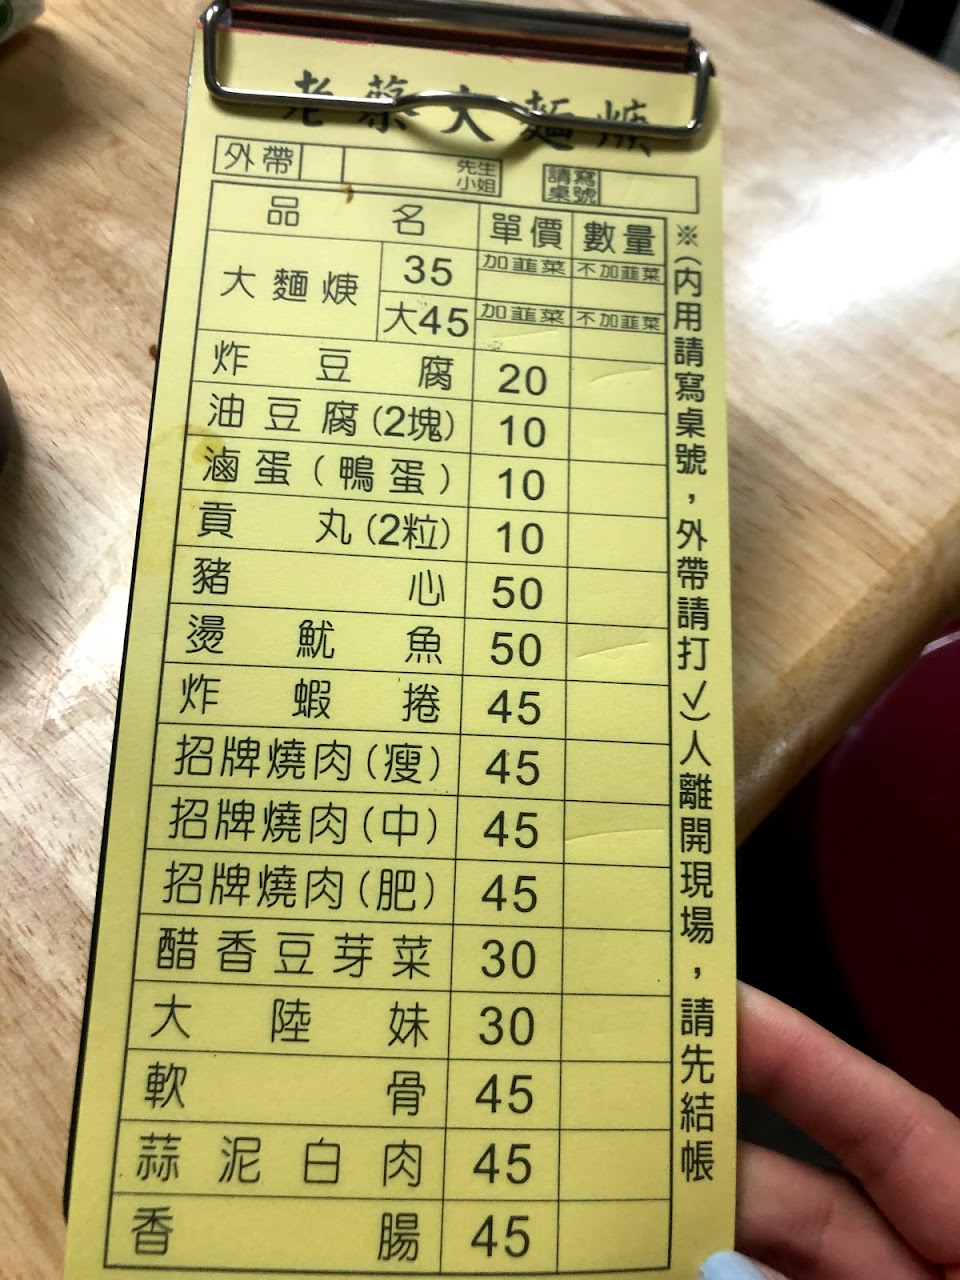 老蔡大麵焿
外帶 先生 小姐 請寫桌號
品名 單價 數量
大麵焿 35 加韮菜 不加韮菜
大45 加韮菜 不加韮菜
炸豆腐 20
油豆腐(2塊) 10
滷蛋(鴨蛋) 10
貢丸(2粒) 10
豬心 50
燙魷魚 50
炸蝦捲 45
招牌燒肉(瘦) 45
招牌燒肉(中) 45
招牌燒肉(肥) 45
醋香豆芽菜 30
大陸妹 30
軟骨 45
蒜泥白肉 45
香腸 45
※(內用請寫桌號，外帶請打✓)人離開現場，請先結帳